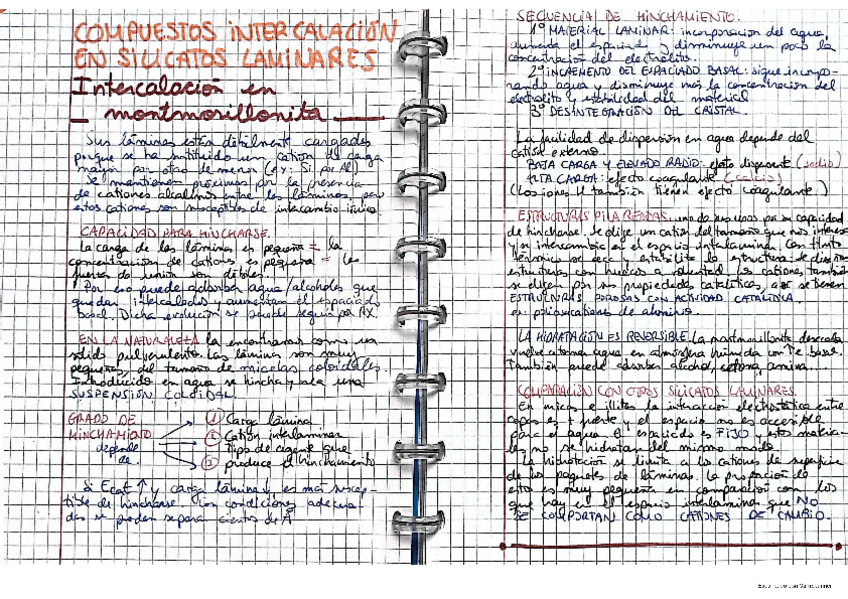 COMPUESTOS INTERCALACIÓN
EN SILICATOS LAMINARES
Intercalación en
montmorillonita
Sus láminas están débilment cargadas
porque se ha sustituido un catión de carga
mayor por otro de menor (ex: Si por Al)
Se mantienen próximas por la presencia
de cationes alcalinos entre las láminas, pero
estos cationes son susceptibles de intercambio iónico.
CAPACIDAD PARA HINCHARSE.
La carga de las láminas es pequeña = la
concentración de cations es pequeña = las
fuerzas de unión son débiles.
Por eso puede adsorber agua/alcoholes que
quedan intercalados y aumentan el espaciado
basal. Dicha evolución se puede seguir por RX.
EN LA NATURALEZA la encontramos como un
sólido pulverulento. Las láminas son muy
pequeñas, del tamaño de micelas coloidales.
Introducido en agua se hincha y da una
SUSPENSIÓN COLOIDAL.
GRADO DE
HINCHAMIENTO
depende
de
1 Carga lámina
2 Catión interlaminar
Tipo de agente que
3 produce el hinchamiento
Si Ecat ↑ y carga lámina ↓ es más suscep-
tible de hincharse. Con condiciones adecua-
das se pueden separar cientos de Å
SECUENCIA DE HINCHAMIENTO.
1º MATERIAL LAMINAR: incorporación del agua,
aumenta el espaciado y disminuye un poco la
concentración del electrolito.
2º INCREMENTO DEL ESPACIADO BASAL: sigue incorpo-
rando agua y disminuye más la concentración del
electrolito y estabilidad del material
3º DESINTEGRACIÓN DEL CRISTAL.
La facilidad de dispersión en agua depende del
catión externo.
BAJA CARGA Y ELEVADO RADIO: efecto dispersante (sodio)
ALTA CARGA: efecto coagulante (calcio)
(Los iones H también tienen efecto coagulante)
ESTRUCTURAS PILAREADAS: uno de sus usos por su capacidad
de hincharse. Se elige un catión del tamaño que nos interese
y se intercambia en el espacio interlaminar. Con ttmto
térmico se seca y estabiliza la estructura: se diseñan
estructuras con huecos a voluntad. Los cationes también
se eligen por sus propiedades catalíticas, así se tienen
ESTRUCTURAS POROSAS CON ACTIVIDAD CATALÍTICA.
ex: polioxicationes de aluminio.
LA HIDRATACIÓN ES REVERSIBLE. La montmorillonita desecada
vuelve a tomar agua, en atmósfera húmeda con Tª baja.
También puede adsorber alcohol, cetona, amina...
COMPARACIÓN CON OTROS SILICATOS LAMINARES.
En micas e illitas la interacción electrostática entre
capas es + fuerte y el espacio no es accesible
para el agua. El espaciado es FIJO y estos materia-
les no se hidratan del mismo modo.
La hidratación se limita a los cationes de superficie
de los paquetes de láminas. La proporción de
estos es muy pequeña en comparación con los
que hay en el espacio interlaminar que NO
SE COMPORTAN COMO CATIONES DE CAMBIO.